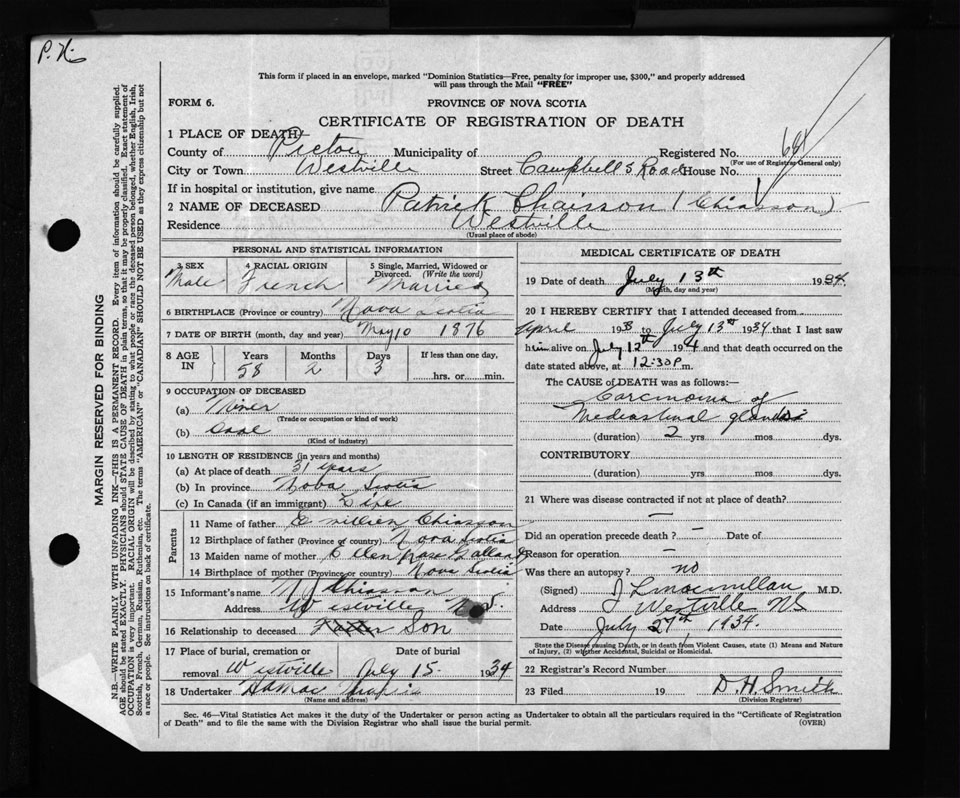 P. H.
This form if placed in an envelope, marked "Dominion Statistics—Free, penalty for improper use, $300," and properly addressed
will pass through the Mail "FREE"
FORM 6.
PROVINCE OF NOVA SCOTIA
CERTIFICATE OF REGISTRATION OF DEATH
1 PLACE OF DEATH
County of Pictou Municipality of Registered No. 661
(For use of Registrar General only)
City or Town Westville Street Campbell's Road House No.
If in hospital or institution, give name
2 NAME OF DECEASED Patrick Chaisson (Chiasson)
Residence Westville
(Usual place of abode)
PERSONAL AND STATISTICAL INFORMATION
3 SEX Male
4 RACIAL ORIGIN French
5 Single, Married, Widowed or Divorced. (Write the word) Married
6 BIRTHPLACE (Province or country) Nova Scotia
7 DATE OF BIRTH (month, day and year) May 10 1876
8 AGE IN Years 58 Months 2 Days 3 If less than one day, hrs. or min.
9 OCCUPATION OF DECEASED
(a) Miner
(Trade or occupation or kind of work)
(b) Coal
(Kind of industry)
10 LENGTH OF RESIDENCE (in years and months)
(a) At place of death 31 years
(b) In province Nova Scotia
(c) In Canada (if an immigrant) Life
Parents
11 Name of father Chiasson
12 Birthplace of father (Province or country) Nova Scotia
13 Maiden name of mother Ellen Rose Gallant
14 Birthplace of mother (Province or country) Nova Scotia
15 Informant's name Chiasson
Address Westville N.S.
16 Relationship to deceased Father Son
17 Place of burial, cremation or removal Westville Date of burial July 15 1934
18 Undertaker
(Name and address)
MEDICAL CERTIFICATE OF DEATH
19 Date of death July 13th 1934.
(Month, day and year)
20 I HEREBY CERTIFY that I attended deceased from
April 193 to July 13th 1934 that I last saw
him alive on July 12th 1934 and that death occurred on the
date stated above, at 12:30 P.m.
The CAUSE of DEATH was as follows:—
Carcinoma of
Mediastinal glands
(duration) 2 yrs mos dys.
CONTRIBUTORY
(duration) yrs. mos. dys.
21 Where was disease contracted if not at place of death?
—
Did an operation precede death? — Date of
Reason for operation —
Was there an autopsy? no
(Signed) J L MacMillan M.D.
Address Westville NS
Date July 27th, 1934.
State the Disease causing Death, or in death from Violent Causes, state (1) Means and Nature
of Injury, (2) whether Accidental, Suicidal or Homicidal.
22 Registrar's Record Number
23 Filed 19 D. H. Smith
(Division Registrar)
Sec. 46—Vital Statistics Act makes it the duty of the Undertaker or person acting as Undertaker to obtain all the particulars required in the "Certificate of Registration
of Death" and to file the same with the Division Registrar who shall issue the burial permit.
(OVER)
MARGIN RESERVED FOR BINDING
N.B.—WRITE PLAINLY WITH UNFADING INK—THIS IS A PERMANENT RECORD. Every item of information should be carefully supplied.
AGE should be stated EXACTLY. PHYSICIANS should STATE CAUSE OF DEATH in plain terms, so that it may be properly classified. Exact statement of
OCCUPATION is very important. RACIAL ORIGIN will be described by stating to what people or race the deceased person belonged, whether English, Irish,
Scottish, French, German, Russian, Ruthenian, etc. The terms "AMERICAN" or "CANADIAN" SHOULD NOT BE USED as they express citizenship but not
a race or people. See instructions on back of certificate.